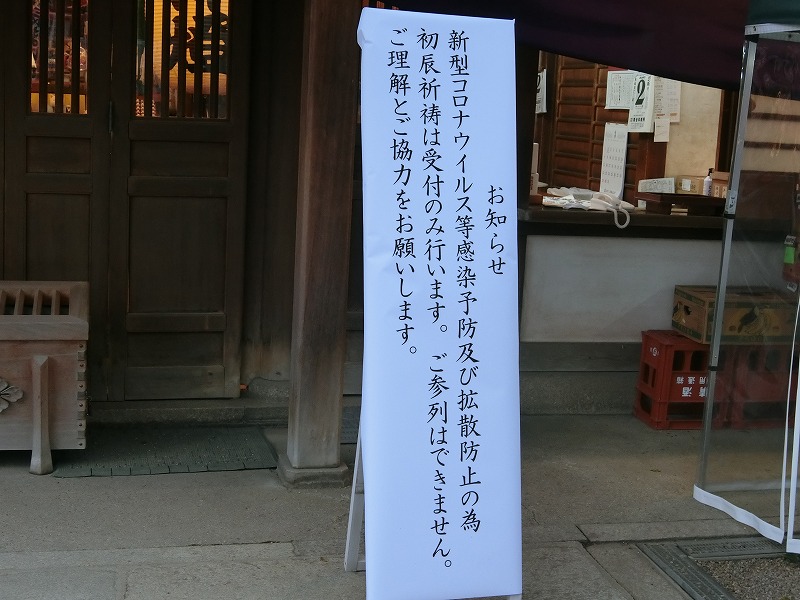 お知らせ
新型コロナウイルス等感染予防及び拡散防止の為
初辰祈祷は受付のみ行います。ご参列はできません。
ご理解とご協力をお願いします。
2
2
清酒